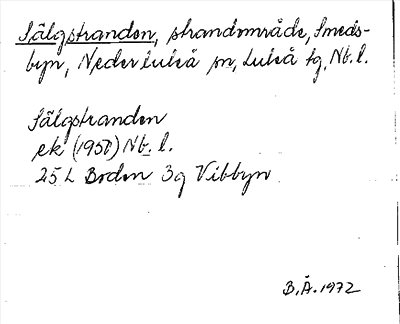 Sälgstranden, strandområde, Smeds-
byn, Nederluleå sn, Luleå tg, Nb. l.
Sälgstranden
ek (1950) Nb. l.
25 L Boden 3g Vibbyn
B.Å. 1972